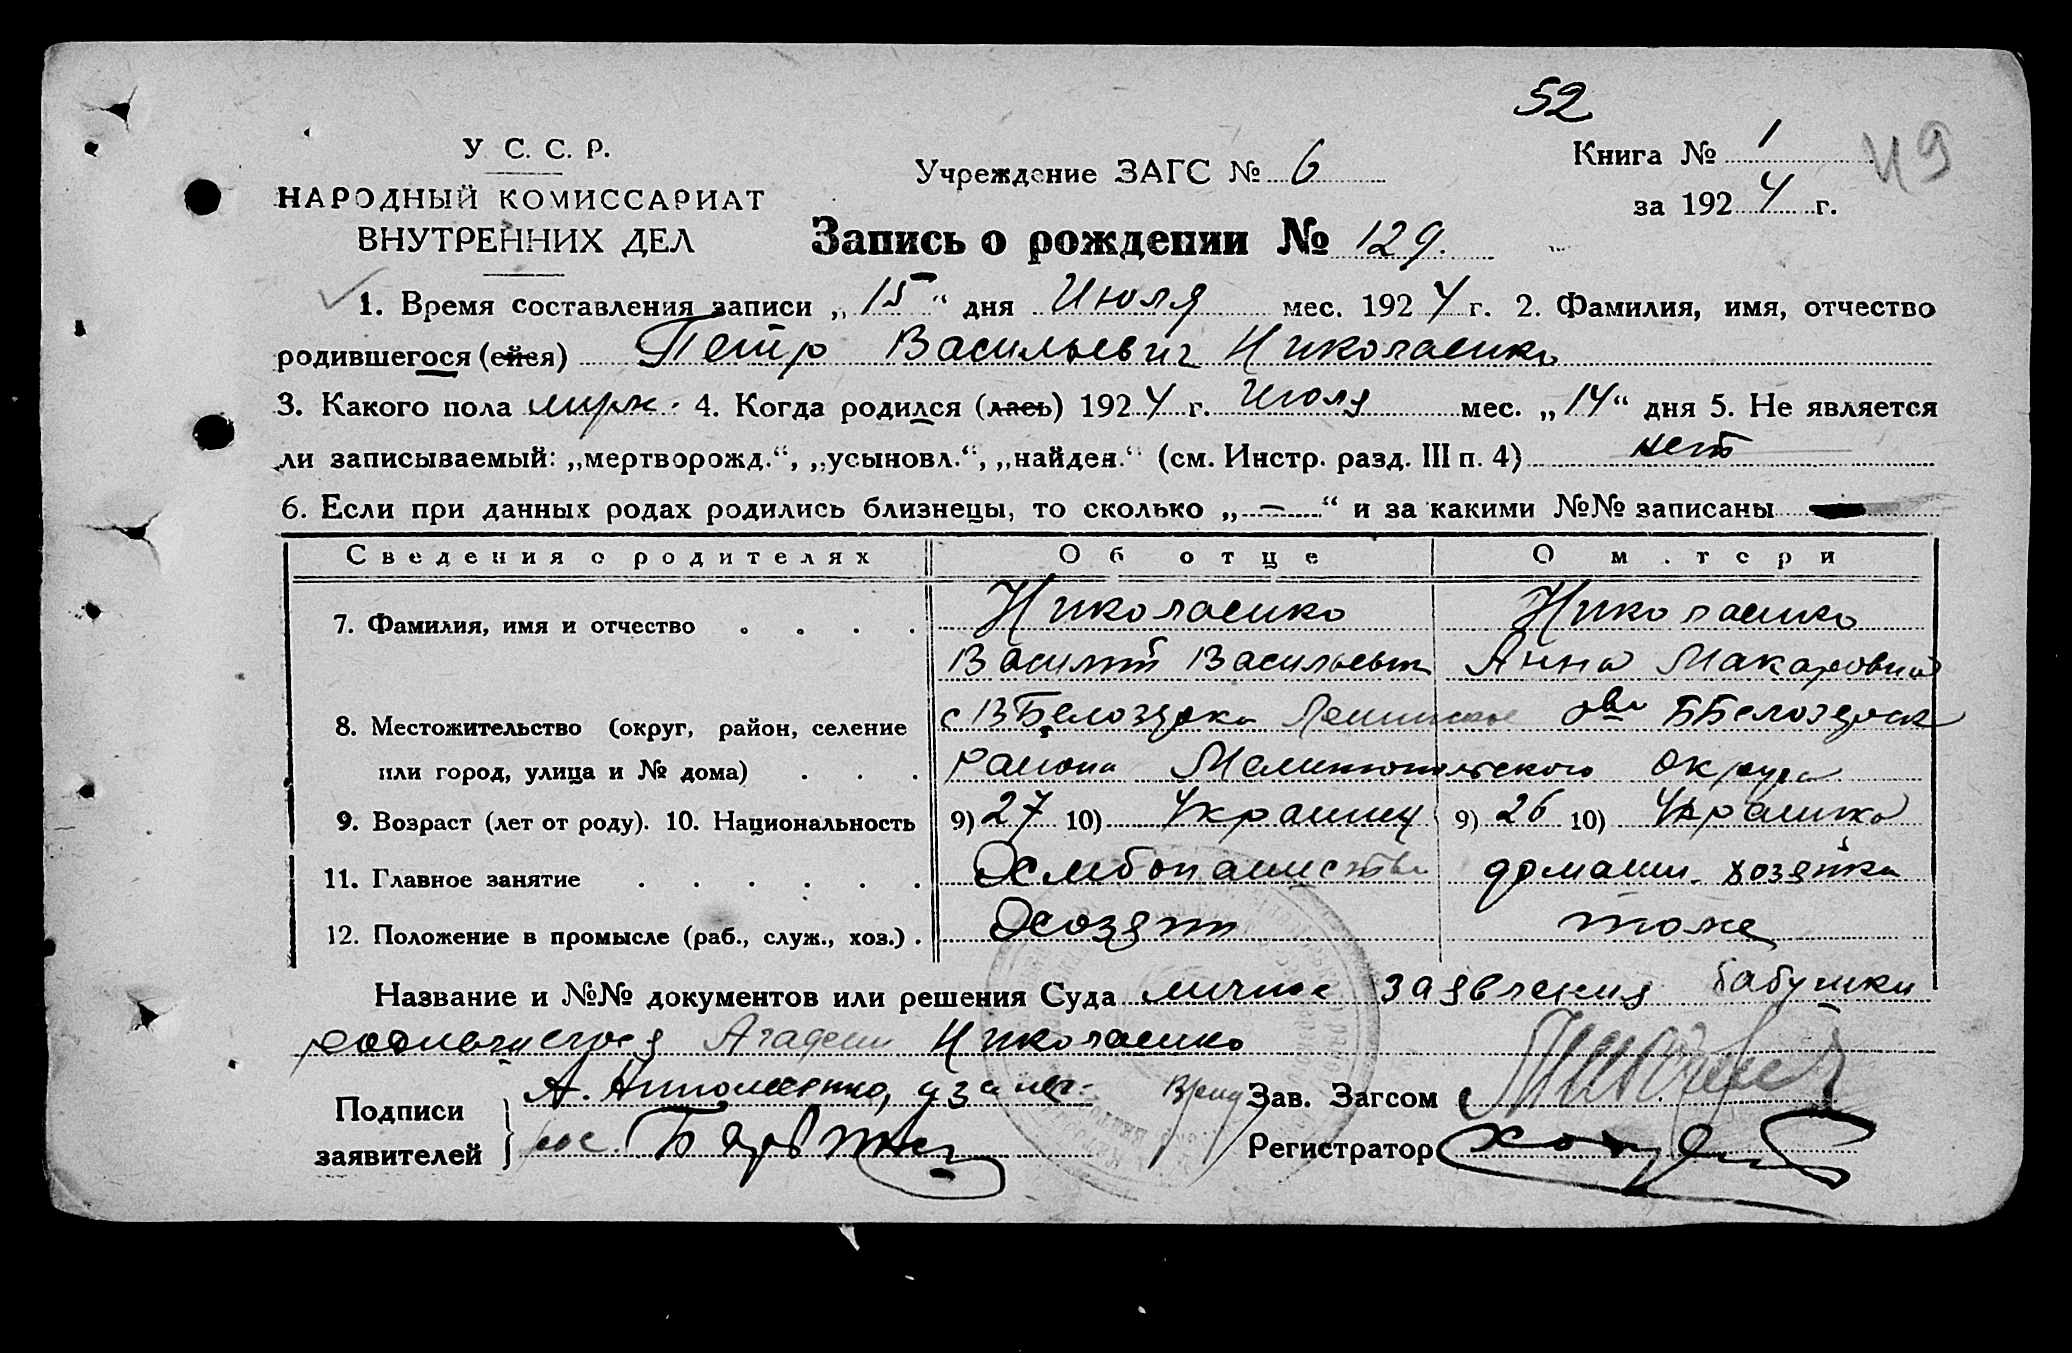 52
У. С. С. Р.
НАРОДНЫЙ КОМИССАРИАТ
ВНУТРЕННИХ ДЕЛ
Учреждение ЗАГС № 6
Книга № 1
49
за 1924 г.
Запись о рождении № 129.
1. Время составления записи „15“ дня Июля мес. 1924 г. 2. Фамилия, имя, отчество
родившегося (ейся) Петр Васильевич Николаенко
3. Какого пола мужс. 4. Когда родился (лась) 1924 г. Июля мес. „14“ дня 5. Не является
ли записываемый: „мертворожд.“, „усыновл.“, „найден.“ (см. Инстр. разд. III п. 4) нет
6. Если при данных родах родились близнецы, то сколько „—“ и за какими №№ записаны —
Сведения о родителях Об отце О матери
7. Фамилия, имя и отчество . . . . Николаенко Николаенко
Василий Васильевич Анна Макаровна
8. Местожительство (округ, район, селение с В Белозерка ББелозерск
или город, улица и № дома) . . . района Мелитопольского округа
9. Возраст (лет от роду). 10. Национальность 9) 27 10) Украинец 9) 26 10) Украинка
11. Главное занятие . . . . . . Хлебопашество домашн. хозяйка
12. Положение в промысле (раб., служ., хоз.) . Хозяин тоже
Название и №№ документов или решения Суда личное заявления бабушки
родившегося Николаенко
А. Николаенко, Зав. Загсом
Подписи
заявителей
Регистратор